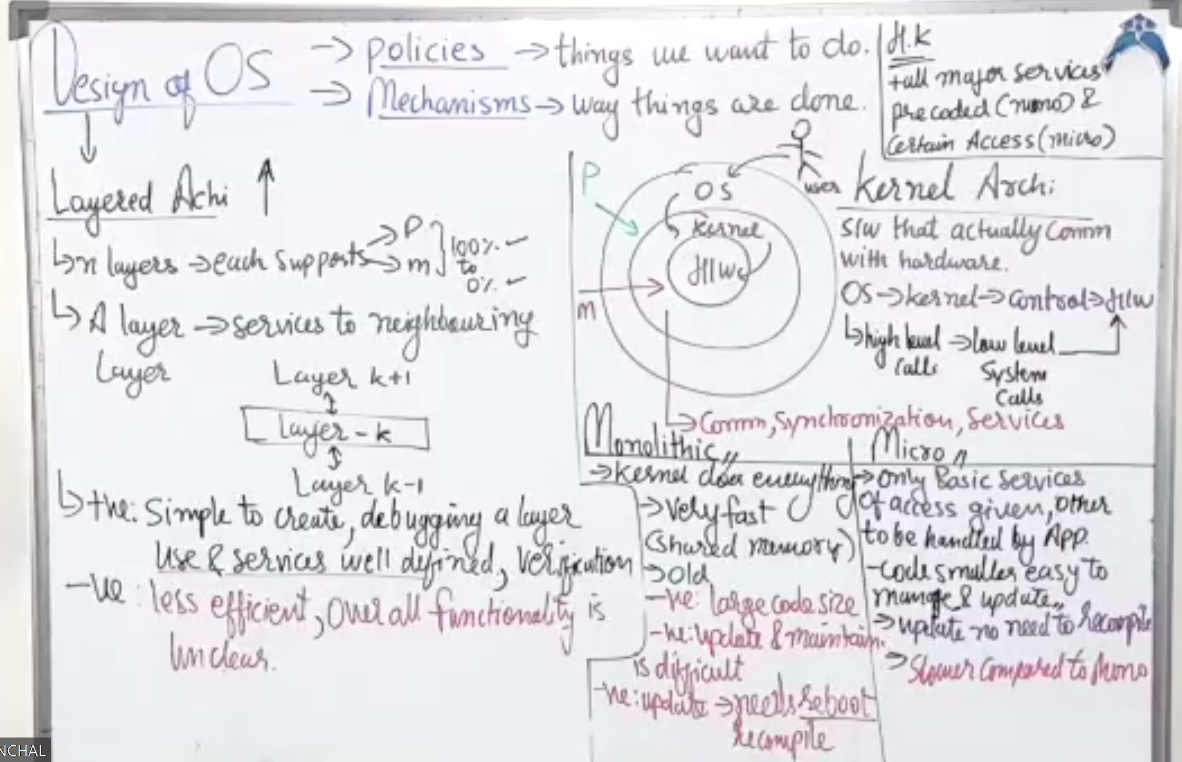 Design of OS
→ policies → things we want to do.
→ Mechanisms → way things are done.
H.K
→all major services
precoded (mono) &
Certain Access (micro)
Layered Achi
↳ n layers → each supports → P
→ m
100%
to
0%
↳ A layer → services to neighbouring
Layer
Layer k+1
Layer - k
Layer k-1
↳ +ve: Simple to create, debugging a layer
use & services well defined, verification
-ve: less efficient, Over all functionality is
Unclear.
P
m
OS
Kernel
H/W
user
Kernel Archi
S/w that actually Comm
with hardware.
OS → kernel → Control → H/w
↳ high level → low level
Calls System
Calls
→ Comm, Synchronization, Services
Monolithic
→ Kernel does everything
→ Very fast
(shared memory)
→ Old
-ve: large code size
-ve: update & maintain.
is difficult
-ve: update → needs reboot
recompile
Micro
→ Only Basic services
of access given, Other
to be handled by App.
- Code smaller easy to
manage & update
→ update no need to recompile
→ Slower Compared to Mono
NCHAL